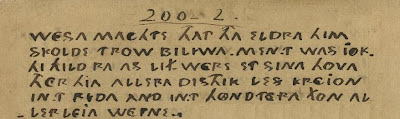 200 2.
WESA MACHTE THAT THA ELDRA HIM
SKOLDE TROW BILIWA. MEN.T WAS JOK.
HI HILD RA AS LIF WERE ET SINA HOVA
THER HJA ALLERA DISTIK LES KREJON
INT RIDA AND INT HONDTERA FON AL
-LERLEJA WEPNE.